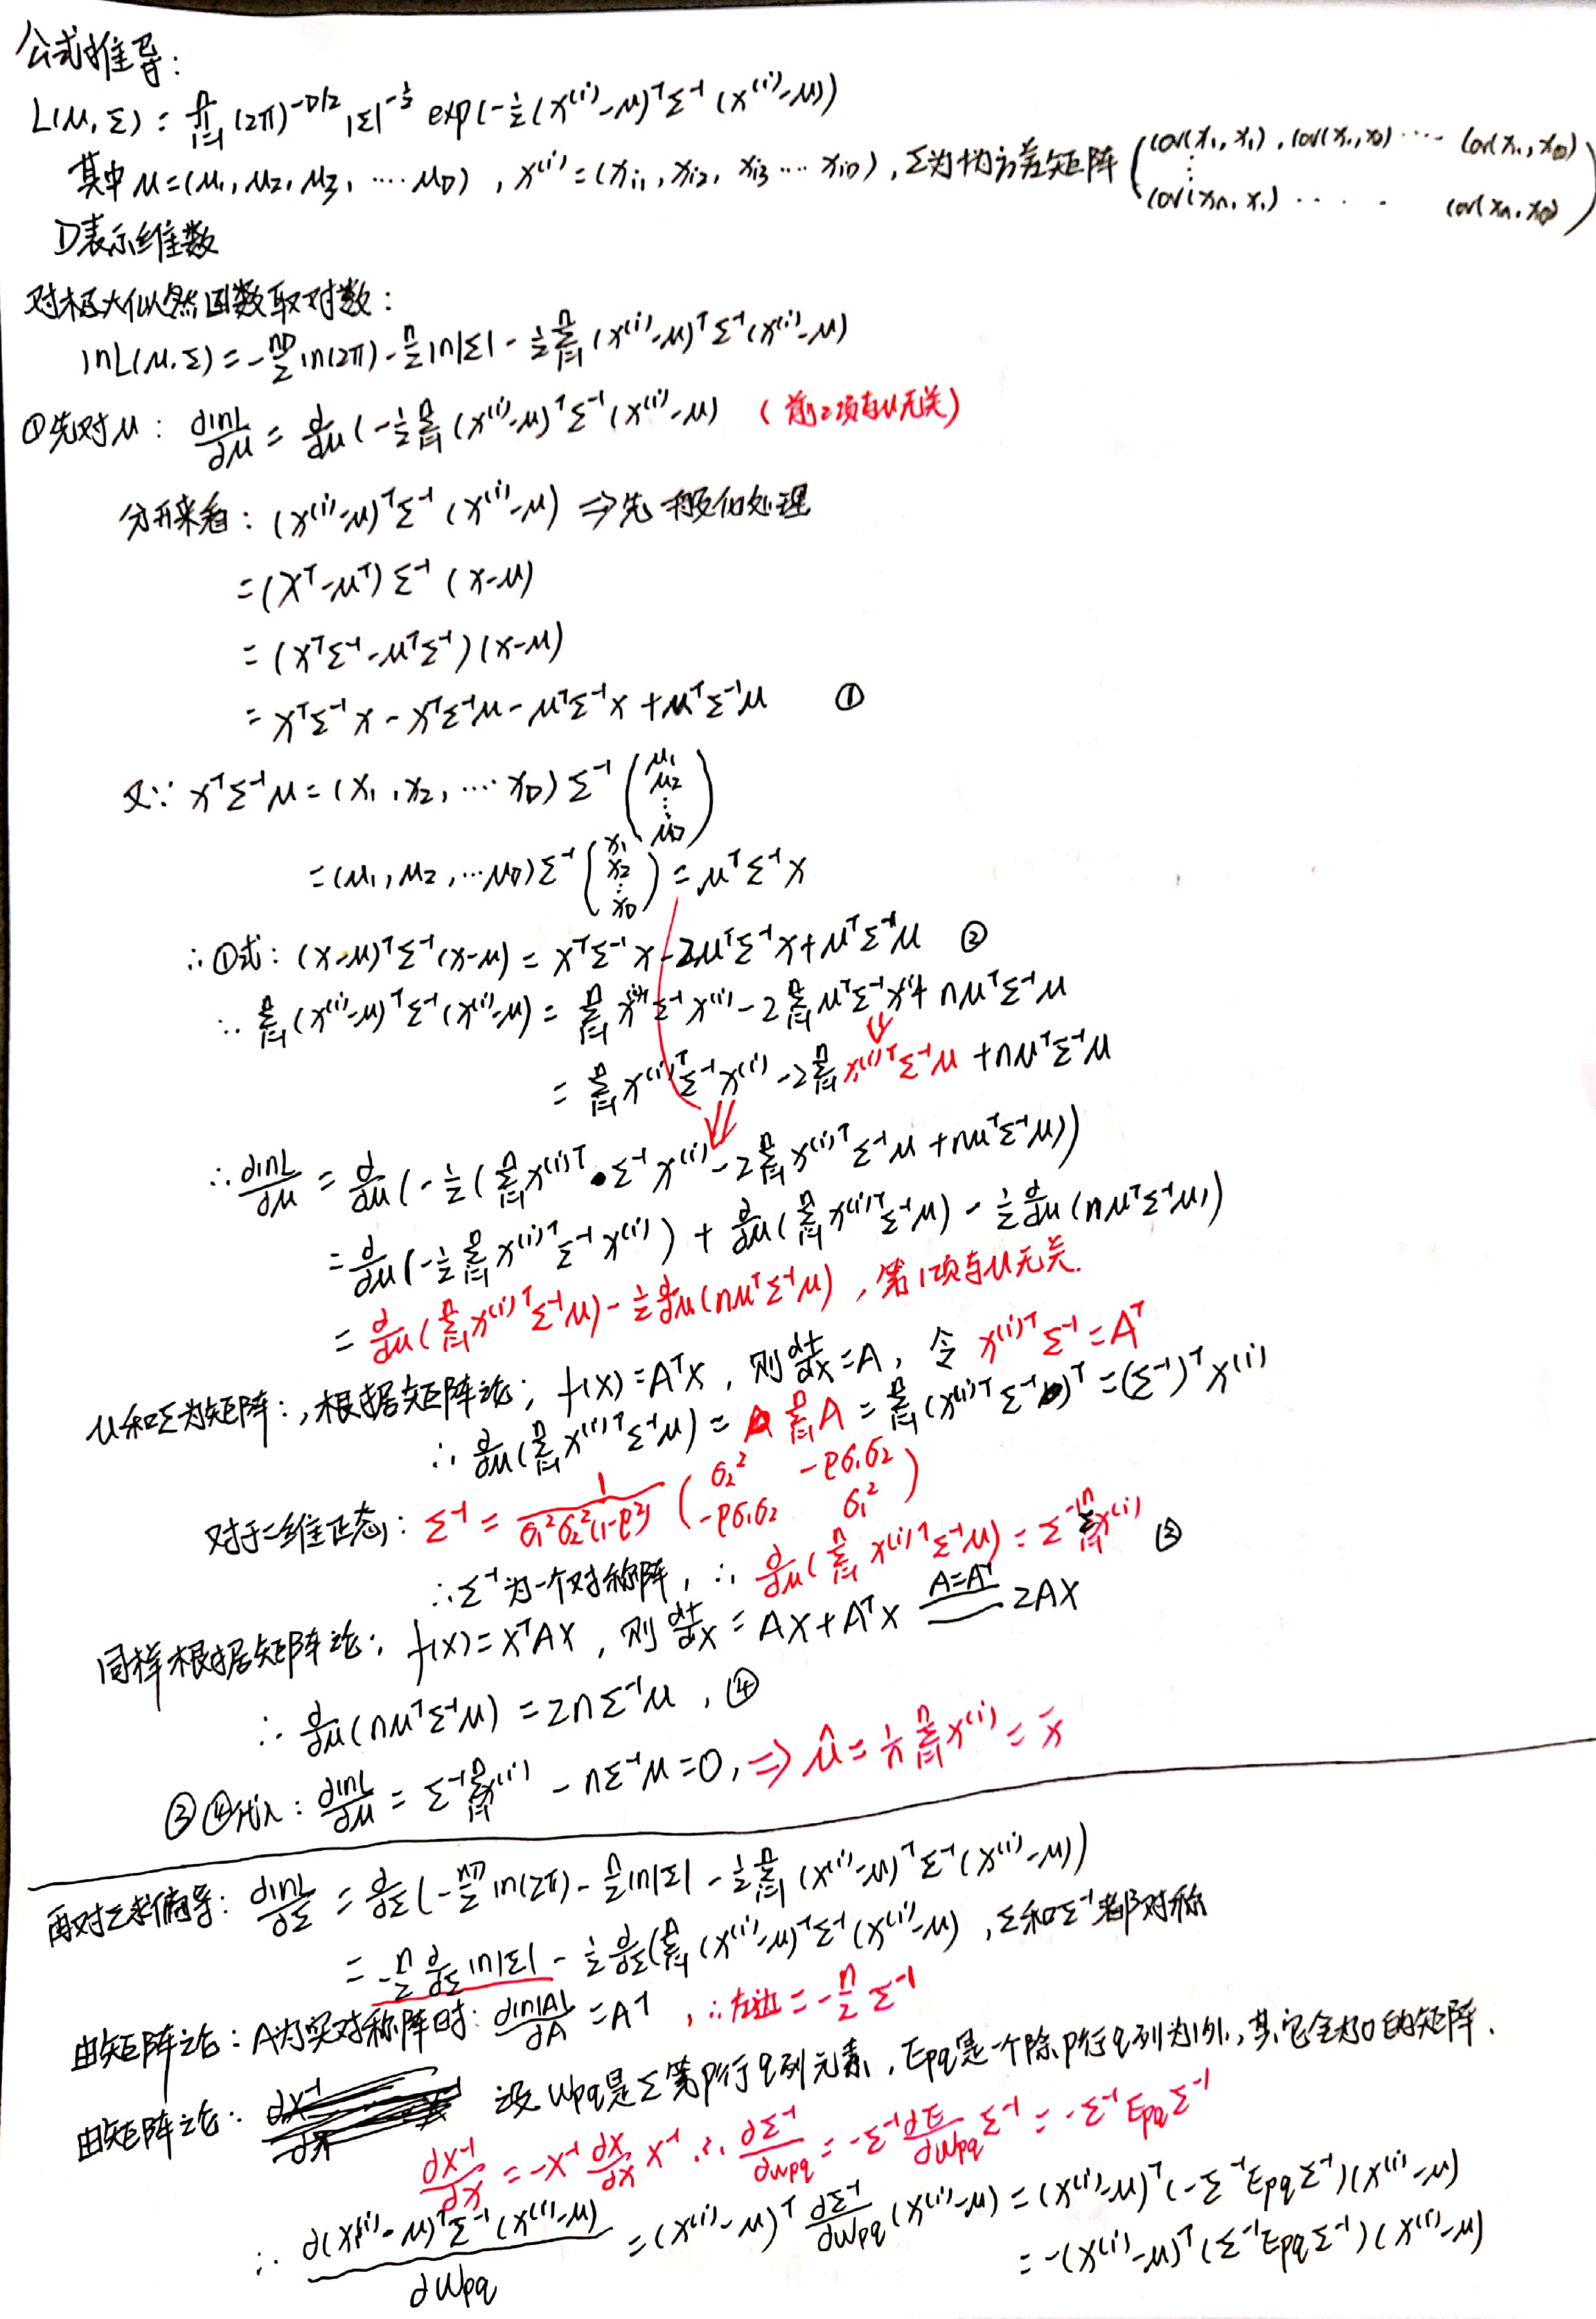 公式推导:
L(μ, Σ) = ∏ᵢ₌₁ⁿ (2π)^(-D/2) |Σ|^(-1/2) exp(-1/2 (x⁽ⁱ⁾-μ)ᵀ Σ⁻¹ (x⁽ⁱ⁾-μ))
其中 μ=(μ₁, μ₂, μ₃, ⋯ μD) , x⁽ⁱ⁾=(xi₁, xi₂, xi₃ ⋯ xiD) , Σ为协方差矩阵 (cov(x₁, x₁) , cov(x₁, x₂) ⋯ cov(x₁, xD)
⋮
cov(xn, x₁) ⋯ cov(xn, xD))
D表示维数
对极大似然函数取对数:
lnL(μ, Σ) = -nD/2 ln(2π) - n/2 ln|Σ| - 1/2 Σᵢ₌₁ⁿ (x⁽ⁱ⁾-μ)ᵀ Σ⁻¹ (x⁽ⁱ⁾-μ)
①先对μ: ∂lnL/∂μ = ∂/∂μ (-1/2 Σᵢ₌₁ⁿ (x⁽ⁱ⁾-μ)ᵀ Σ⁻¹ (x⁽ⁱ⁾-μ) (前2项与μ无关)
分开来看: (x⁽ⁱ⁾-μ)ᵀ Σ⁻¹ (x⁽ⁱ⁾-μ) ⇒先一般化处理
=(xᵀ-μᵀ) Σ⁻¹ (x-μ)
= (xᵀΣ⁻¹-μᵀΣ⁻¹)(x-μ)
= xᵀΣ⁻¹x - xᵀΣ⁻¹μ - μᵀΣ⁻¹x + μᵀΣ⁻¹μ ①
又∵ xᵀΣ⁻¹μ = (x₁, x₂, ⋯ xD) Σ⁻¹ (μ₁ μ₂ ⋮ μD)
=(μ₁, μ₂, ⋯ μD) Σ⁻¹ (x₁ x₂ ⋮ xD) = μᵀΣ⁻¹x
∴①式: (x-μ)ᵀΣ⁻¹(x-μ) = xᵀΣ⁻¹x - 2μᵀΣ⁻¹x + μᵀΣ⁻¹μ ②
∴ Σᵢ₌₁ⁿ (x⁽ⁱ⁾-μ)ᵀΣ⁻¹(x⁽ⁱ⁾-μ) = Σᵢ₌₁ⁿ x⁽ⁱ⁾ᵀΣ⁻¹x⁽ⁱ⁾ - 2Σᵢ₌₁ⁿ μᵀΣ⁻¹x⁽ⁱ⁾ + nμᵀΣ⁻¹μ
⇓
= Σᵢ₌₁ⁿ x⁽ⁱ⁾ᵀΣ⁻¹x⁽ⁱ⁾ - 2Σᵢ₌₁ⁿ x⁽ⁱ⁾ᵀΣ⁻¹μ + nμᵀΣ⁻¹μ
∴ ∂lnL/∂μ = ∂/∂μ (-1/2 (Σᵢ₌₁ⁿ x⁽ⁱ⁾ᵀ Σ⁻¹x⁽ⁱ⁾ - 2Σᵢ₌₁ⁿ x⁽ⁱ⁾ᵀΣ⁻¹μ + nμᵀΣ⁻¹μ))
= ∂/∂μ (-1/2 Σᵢ₌₁ⁿ x⁽ⁱ⁾ᵀΣ⁻¹x⁽ⁱ⁾) + ∂/∂μ (Σᵢ₌₁ⁿ x⁽ⁱ⁾ᵀΣ⁻¹μ) - 1/2 ∂/∂μ (nμᵀΣ⁻¹μ)
= ∂/∂μ (Σᵢ₌₁ⁿ x⁽ⁱ⁾ᵀΣ⁻¹μ) - 1/2 ∂/∂μ (nμᵀΣ⁻¹μ) , 第1项与μ无关.
μ和Σ为矩阵: , 根据矩阵论: f(x)=Aᵀx , 则 df/dx = A , 令 x⁽ⁱ⁾ᵀΣ⁻¹ = Aᵀ
∴ ∂/∂μ (Σᵢ₌₁ⁿ x⁽ⁱ⁾ᵀΣ⁻¹μ) = Σᵢ₌₁ⁿ A = Σᵢ₌₁ⁿ (x⁽ⁱ⁾ᵀΣ⁻¹)ᵀ = (Σ⁻¹)ᵀx⁽ⁱ⁾
对于二维正态: Σ⁻¹ = 1/(σ₁²σ₂²(1-ρ²)) (σ₂² -ρσ₁σ₂ -ρσ₁σ₂ σ₁²)
∴Σ⁻¹为一个对称阵, ∴ ∂/∂μ (Σᵢ₌₁ⁿ x⁽ⁱ⁾ᵀΣ⁻¹μ) = Σ⁻¹Σᵢ₌₁ⁿx⁽ⁱ⁾ ③
同样根据矩阵论: f(x)=xᵀAx , 则 df/dx = Ax+Aᵀx =(A=Aᵀ)= 2Ax
∴ ∂/∂μ (nμᵀΣ⁻¹μ) = 2nΣ⁻¹μ , ④
③④代入: ∂lnL/∂μ = Σ⁻¹Σᵢ₌₁ⁿx⁽ⁱ⁾ - nΣ⁻¹μ = 0, ⇒ μ̂ = 1/n Σᵢ₌₁ⁿ x⁽ⁱ⁾ = x̄
再对Σ求偏导: ∂lnL/∂Σ = ∂/∂Σ (-nD/2 ln(2π) - n/2 ln|Σ| - 1/2 Σᵢ₌₁ⁿ (x⁽ⁱ⁾-μ)ᵀΣ⁻¹(x⁽ⁱ⁾-μ))
= -n/2 ∂/∂Σ ln|Σ| - 1/2 ∂/∂Σ (Σᵢ₌₁ⁿ (x⁽ⁱ⁾-μ)ᵀΣ⁻¹(x⁽ⁱ⁾-μ) , Σ和Σ⁻¹都对称
由矩阵论: A为实对称阵时: ∂ln|A|/∂A = A⁻¹ , ∴左边 = -n/2 Σ⁻¹
由矩阵论: 设 Wpq是Σ第p行q列元素, Epq是一个除p行q列为1外, 其它全为0的矩阵.
∂X⁻¹/∂x = -X⁻¹ ∂X/∂x X⁻¹ ∴ ∂Σ⁻¹/∂Wpq = -Σ⁻¹ ∂Σ/∂Wpq Σ⁻¹ = -Σ⁻¹EpqΣ⁻¹
∴ ∂(x⁽ⁱ⁾-μ)ᵀΣ⁻¹(x⁽ⁱ⁾-μ)/∂Wpq = (x⁽ⁱ⁾-μ)ᵀ ∂Σ⁻¹/∂Wpq (x⁽ⁱ⁾-μ) = (x⁽ⁱ⁾-μ)ᵀ(-Σ⁻¹EpqΣ⁻¹)(x⁽ⁱ⁾-μ)
= -(x⁽ⁱ⁾-μ)ᵀ(Σ⁻¹EpqΣ⁻¹)(x⁽ⁱ⁾-μ)